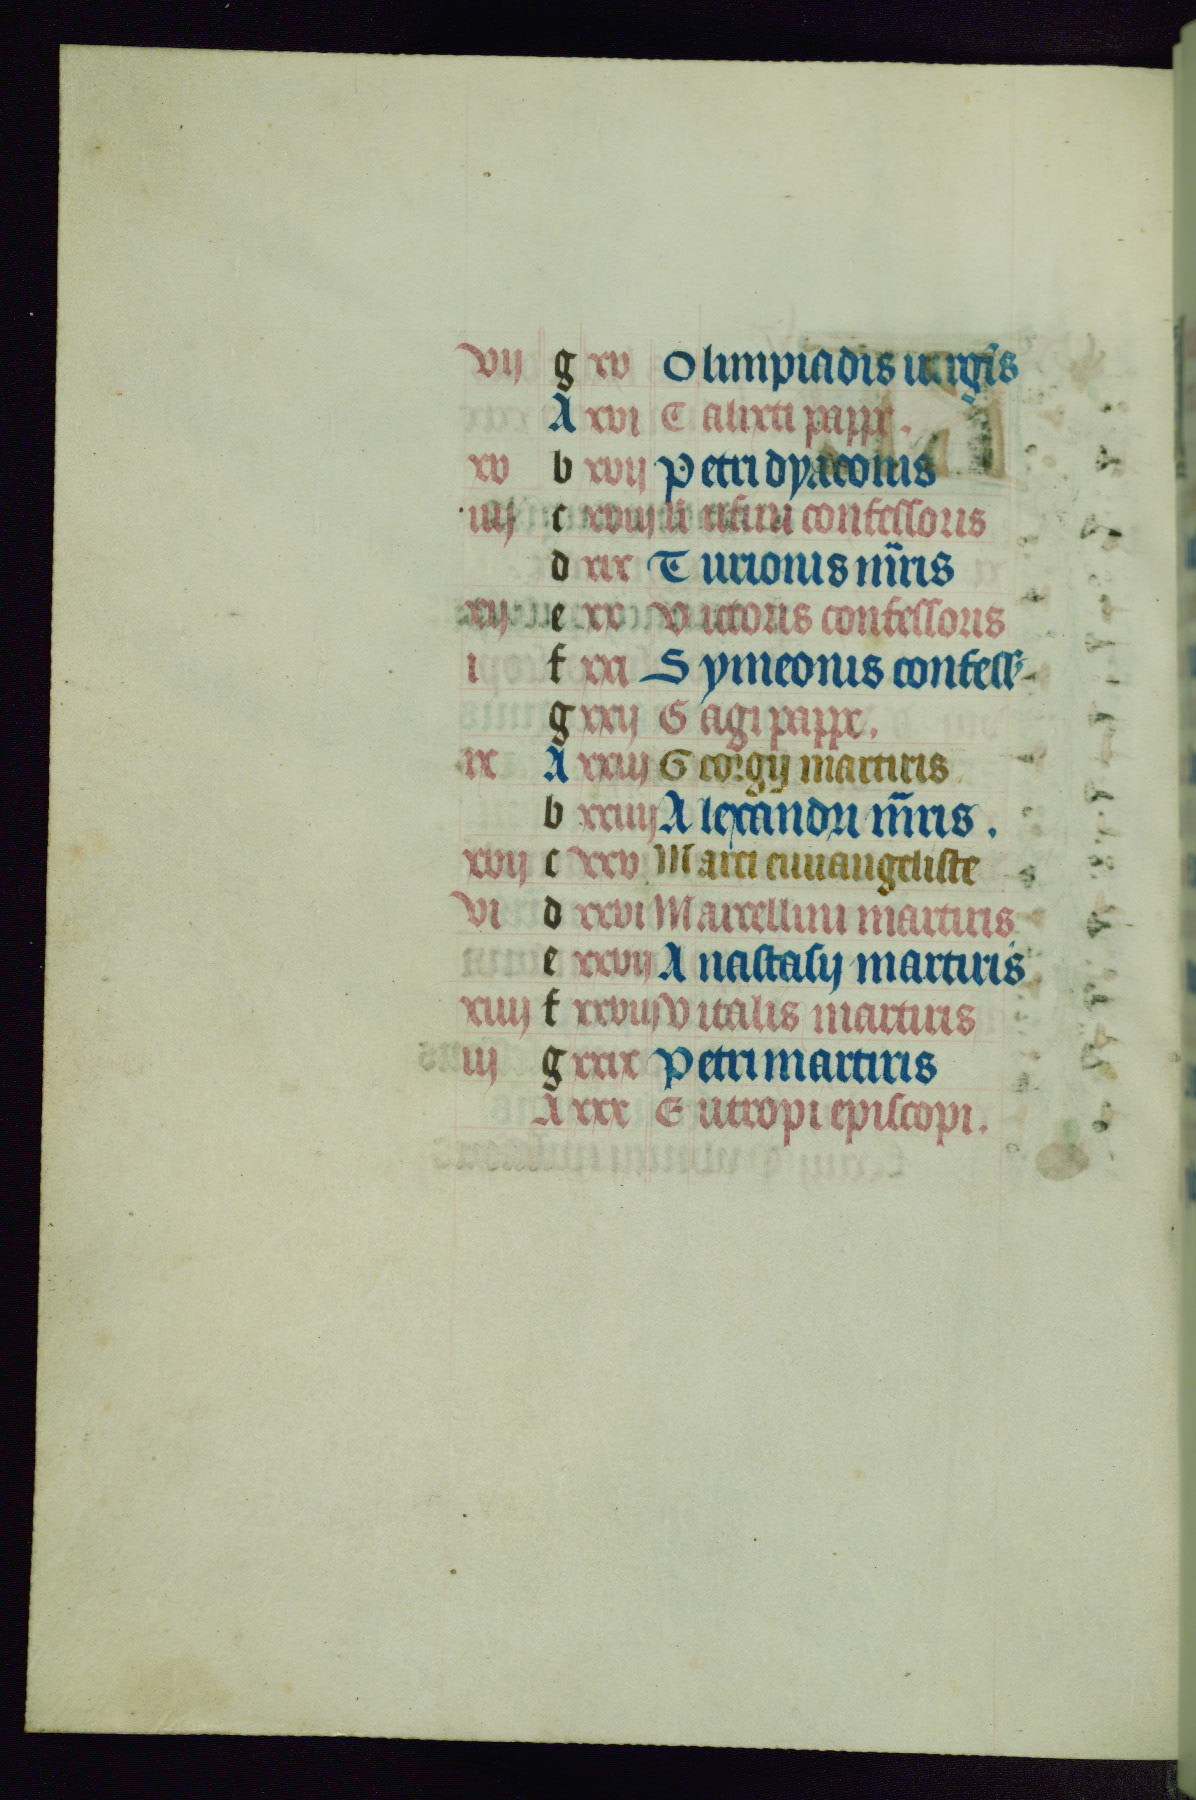 vij g xv Olimpiadis uirgis
A xvi Calixti pappe.
xv b xvij Petri dyaconis
iiij c xviij confessoris
d xix Turionis mr̄is
xij e xx Victoris confessoris
i f xxi Symeonis confess
g xxij Gagi pappe.
ix A xxiij Georgij martiris
b xxiiij Alexandri mr̄is.
xvij c xxv Marci euuangeliste
vi d xxvi Marcellini martiris
e xxvij Anastasij martiris
xiiij f xxviij Vitalis martiris
iij g xxix Petri martiris
A xxx Eutropi episcopi.